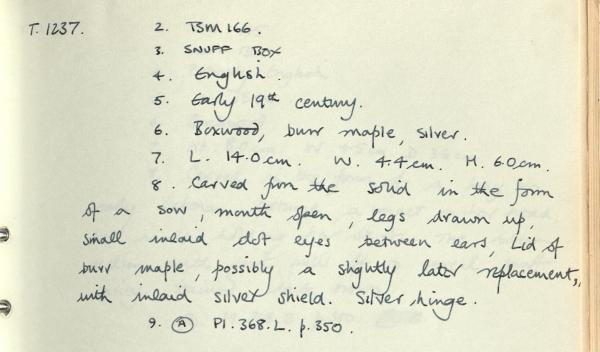 T. 1237. 2. TSM 166.
3. SNUFF BOX
4. English.
5. Early 19th century.
6. Boxwood, burr maple, silver.
7. L. 14.0cm. W. 4.4cm. H. 6.0cm.
8. Carved from the solid in the form
of a sow, mouth open, legs drawn up,
small inlaid dot eyes between ears, Lid of
burr maple, possibly a slightly later replacement,
with inlaid silver shield. Silver hinge.
9. A Pl. 368. L. p. 350.